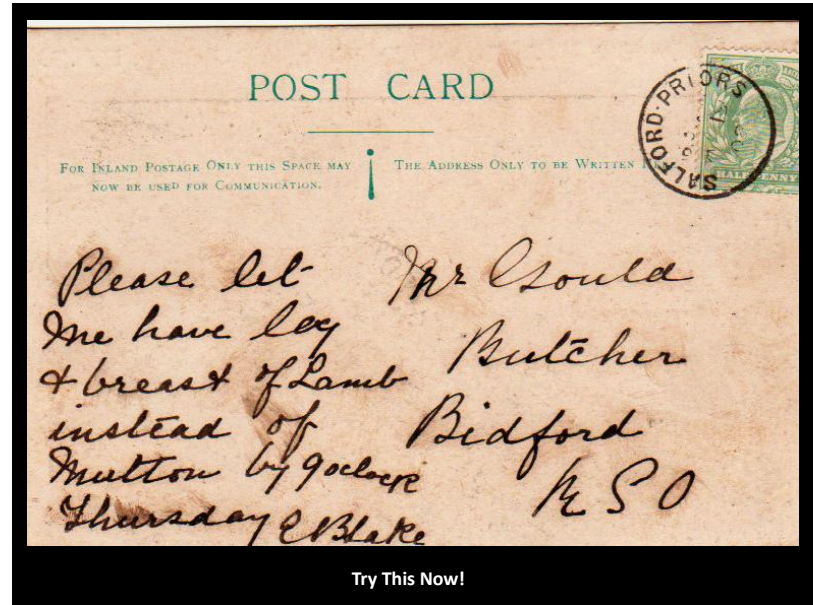 POST CARD
FOR INLAND POSTAGE ONLY THIS SPACE MAY
NOW BE USED FOR COMMUNICATION.
THE ADDRESS ONLY TO BE WRITTEN
SALFORD·PRIORS
HALFPENNY
Please let
me have leg
& breast of Lamb
instead of
Mutton by 9oclock
Thursday E Blake
Mr Gould
Butcher
Bidford
R S O
Try This Now!